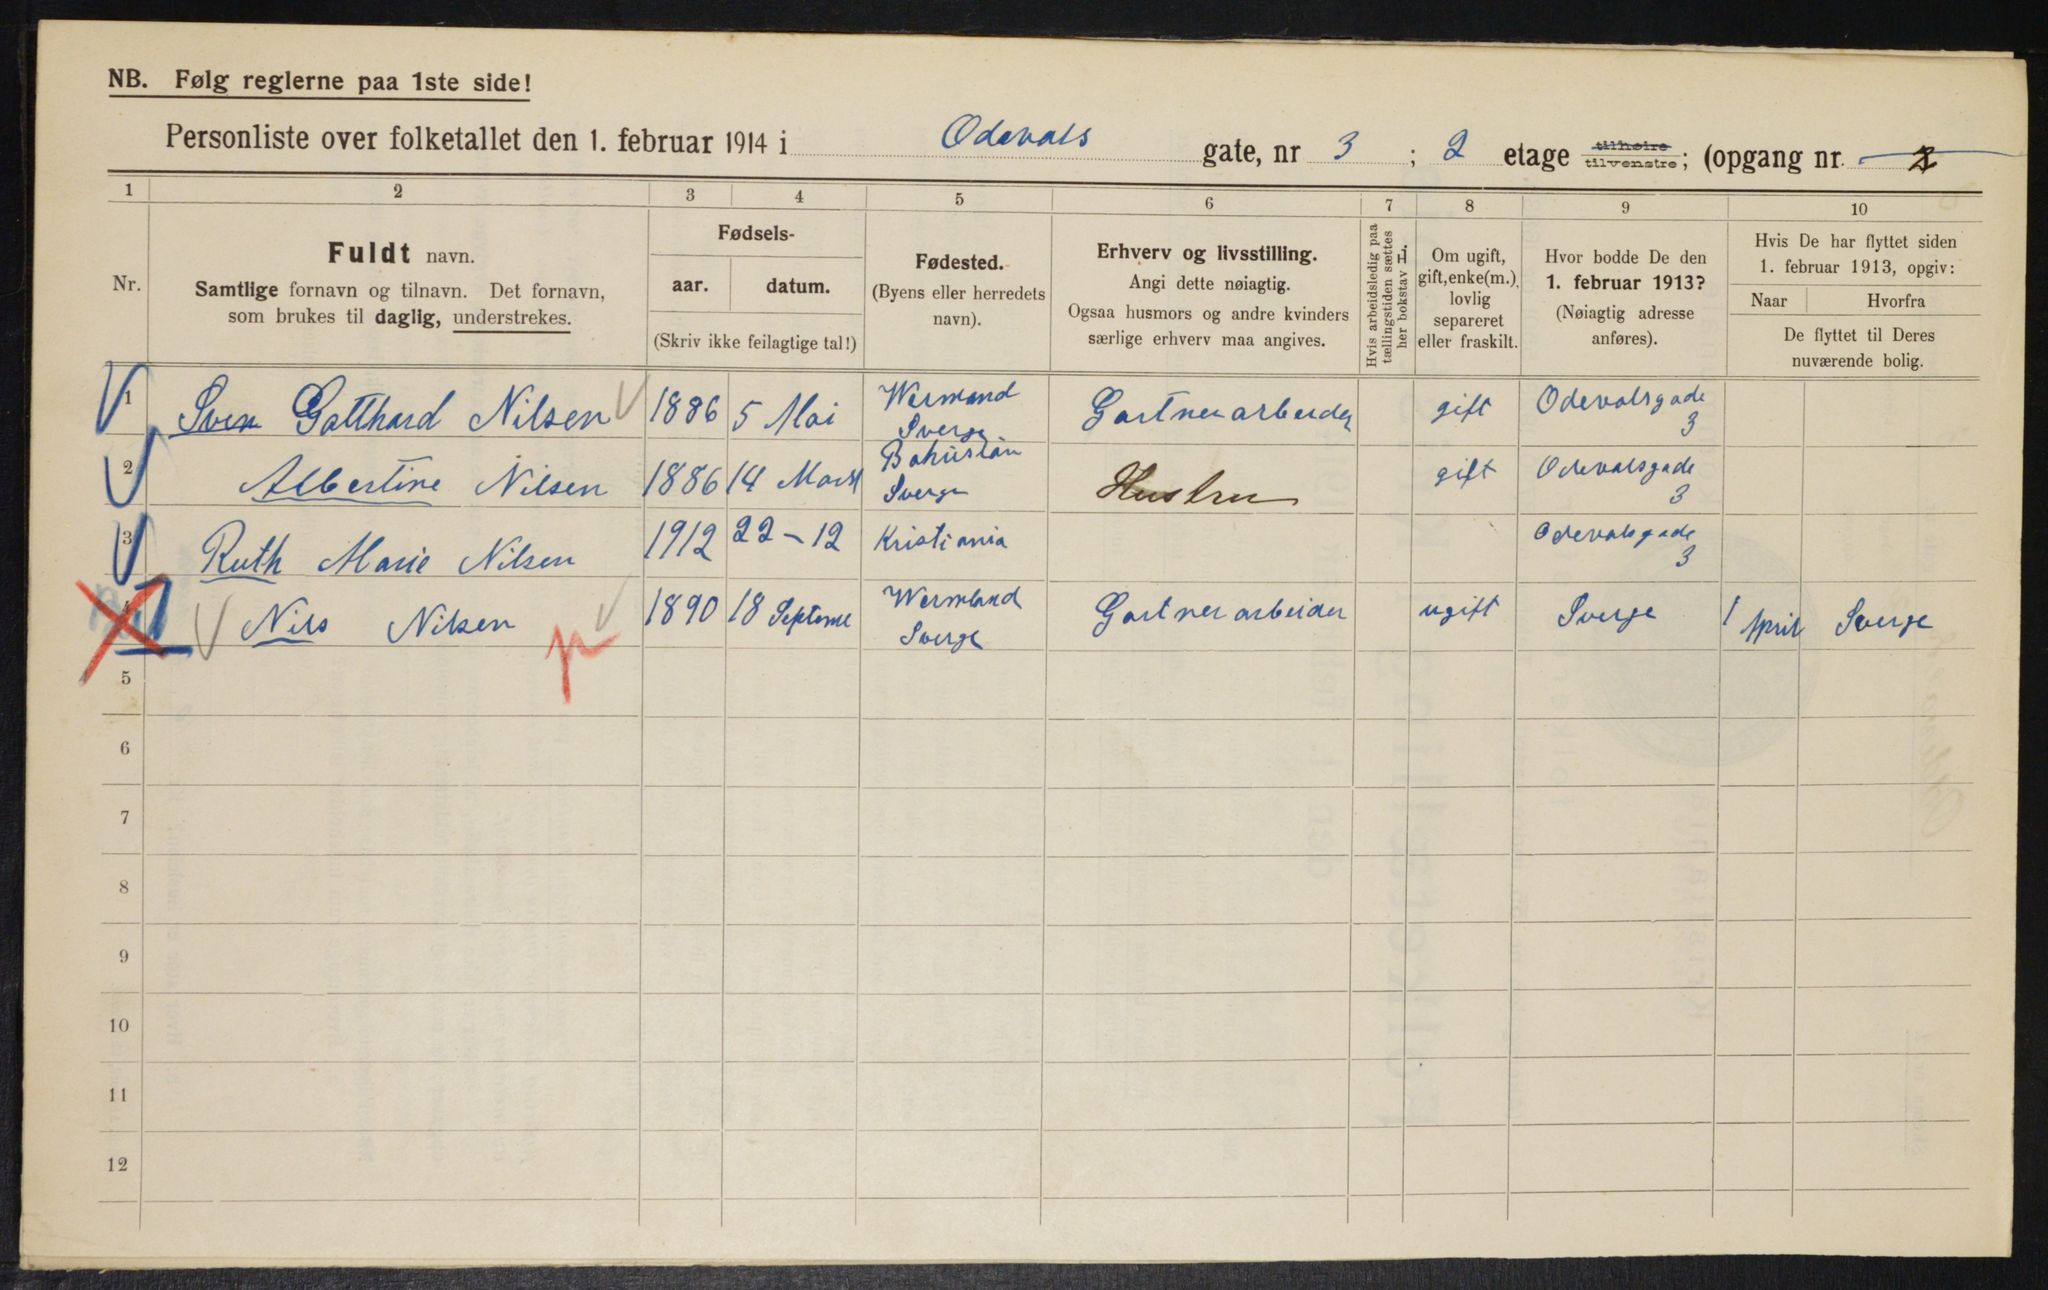 NB. Følg reglerne paa 1ste side!
Personliste over folketallet den 1. februar 1914 i Odevals gate, nr 3 ; 2 etage tilhøire tilvenstre; (opgang nr.
1 2 3 4 5 6 7 8 9 10
Nr.
Fuldt navn.
Samtlige fornavn og tilnavn. Det fornavn,
som brukes til daglig, understrekes.
Fødsels-
aar. datum.
(Skriv ikke feilagtige tal!)
Fødested.
(Byens eller herredets
navn).
Erhverv og livsstilling.
Angi dette nøiagtig.
Ogsaa husmors og andre kvinders
særlige erhverv maa angives.
Hvis arbeidsledig paa
tællingstiden sættes
her bokstav L.
Om ugift,
gift, enke(m.),
lovlig
separeret
eller fraskilt.
Hvor bodde De den
1. februar 1913?
(Nøiagtig adresse
anføres).
Hvis De har flyttet siden
1. februar 1913, opgiv:
Naar Hvorfra
De flyttet til Deres
nuværende bolig.
1 Sven Gotthard Nilsen 1886 5 Mai Wermland Sverge Gartnerarbeider gift Odevalsgade 3
2 Albertine Nilsen 1886 14 Marst Bohuslän Sverge Hustru gift Odevalsgade 3
3 Ruth Marie Nilsen 1912 22-12 Kristiania Odevalsgade 3
4 Nils Nilsen 1890 18 Septeme Wermland Sverge Gartnerarbeider ugift Sverge 1 April Sverge
5
6
7
8
9
10
11
12